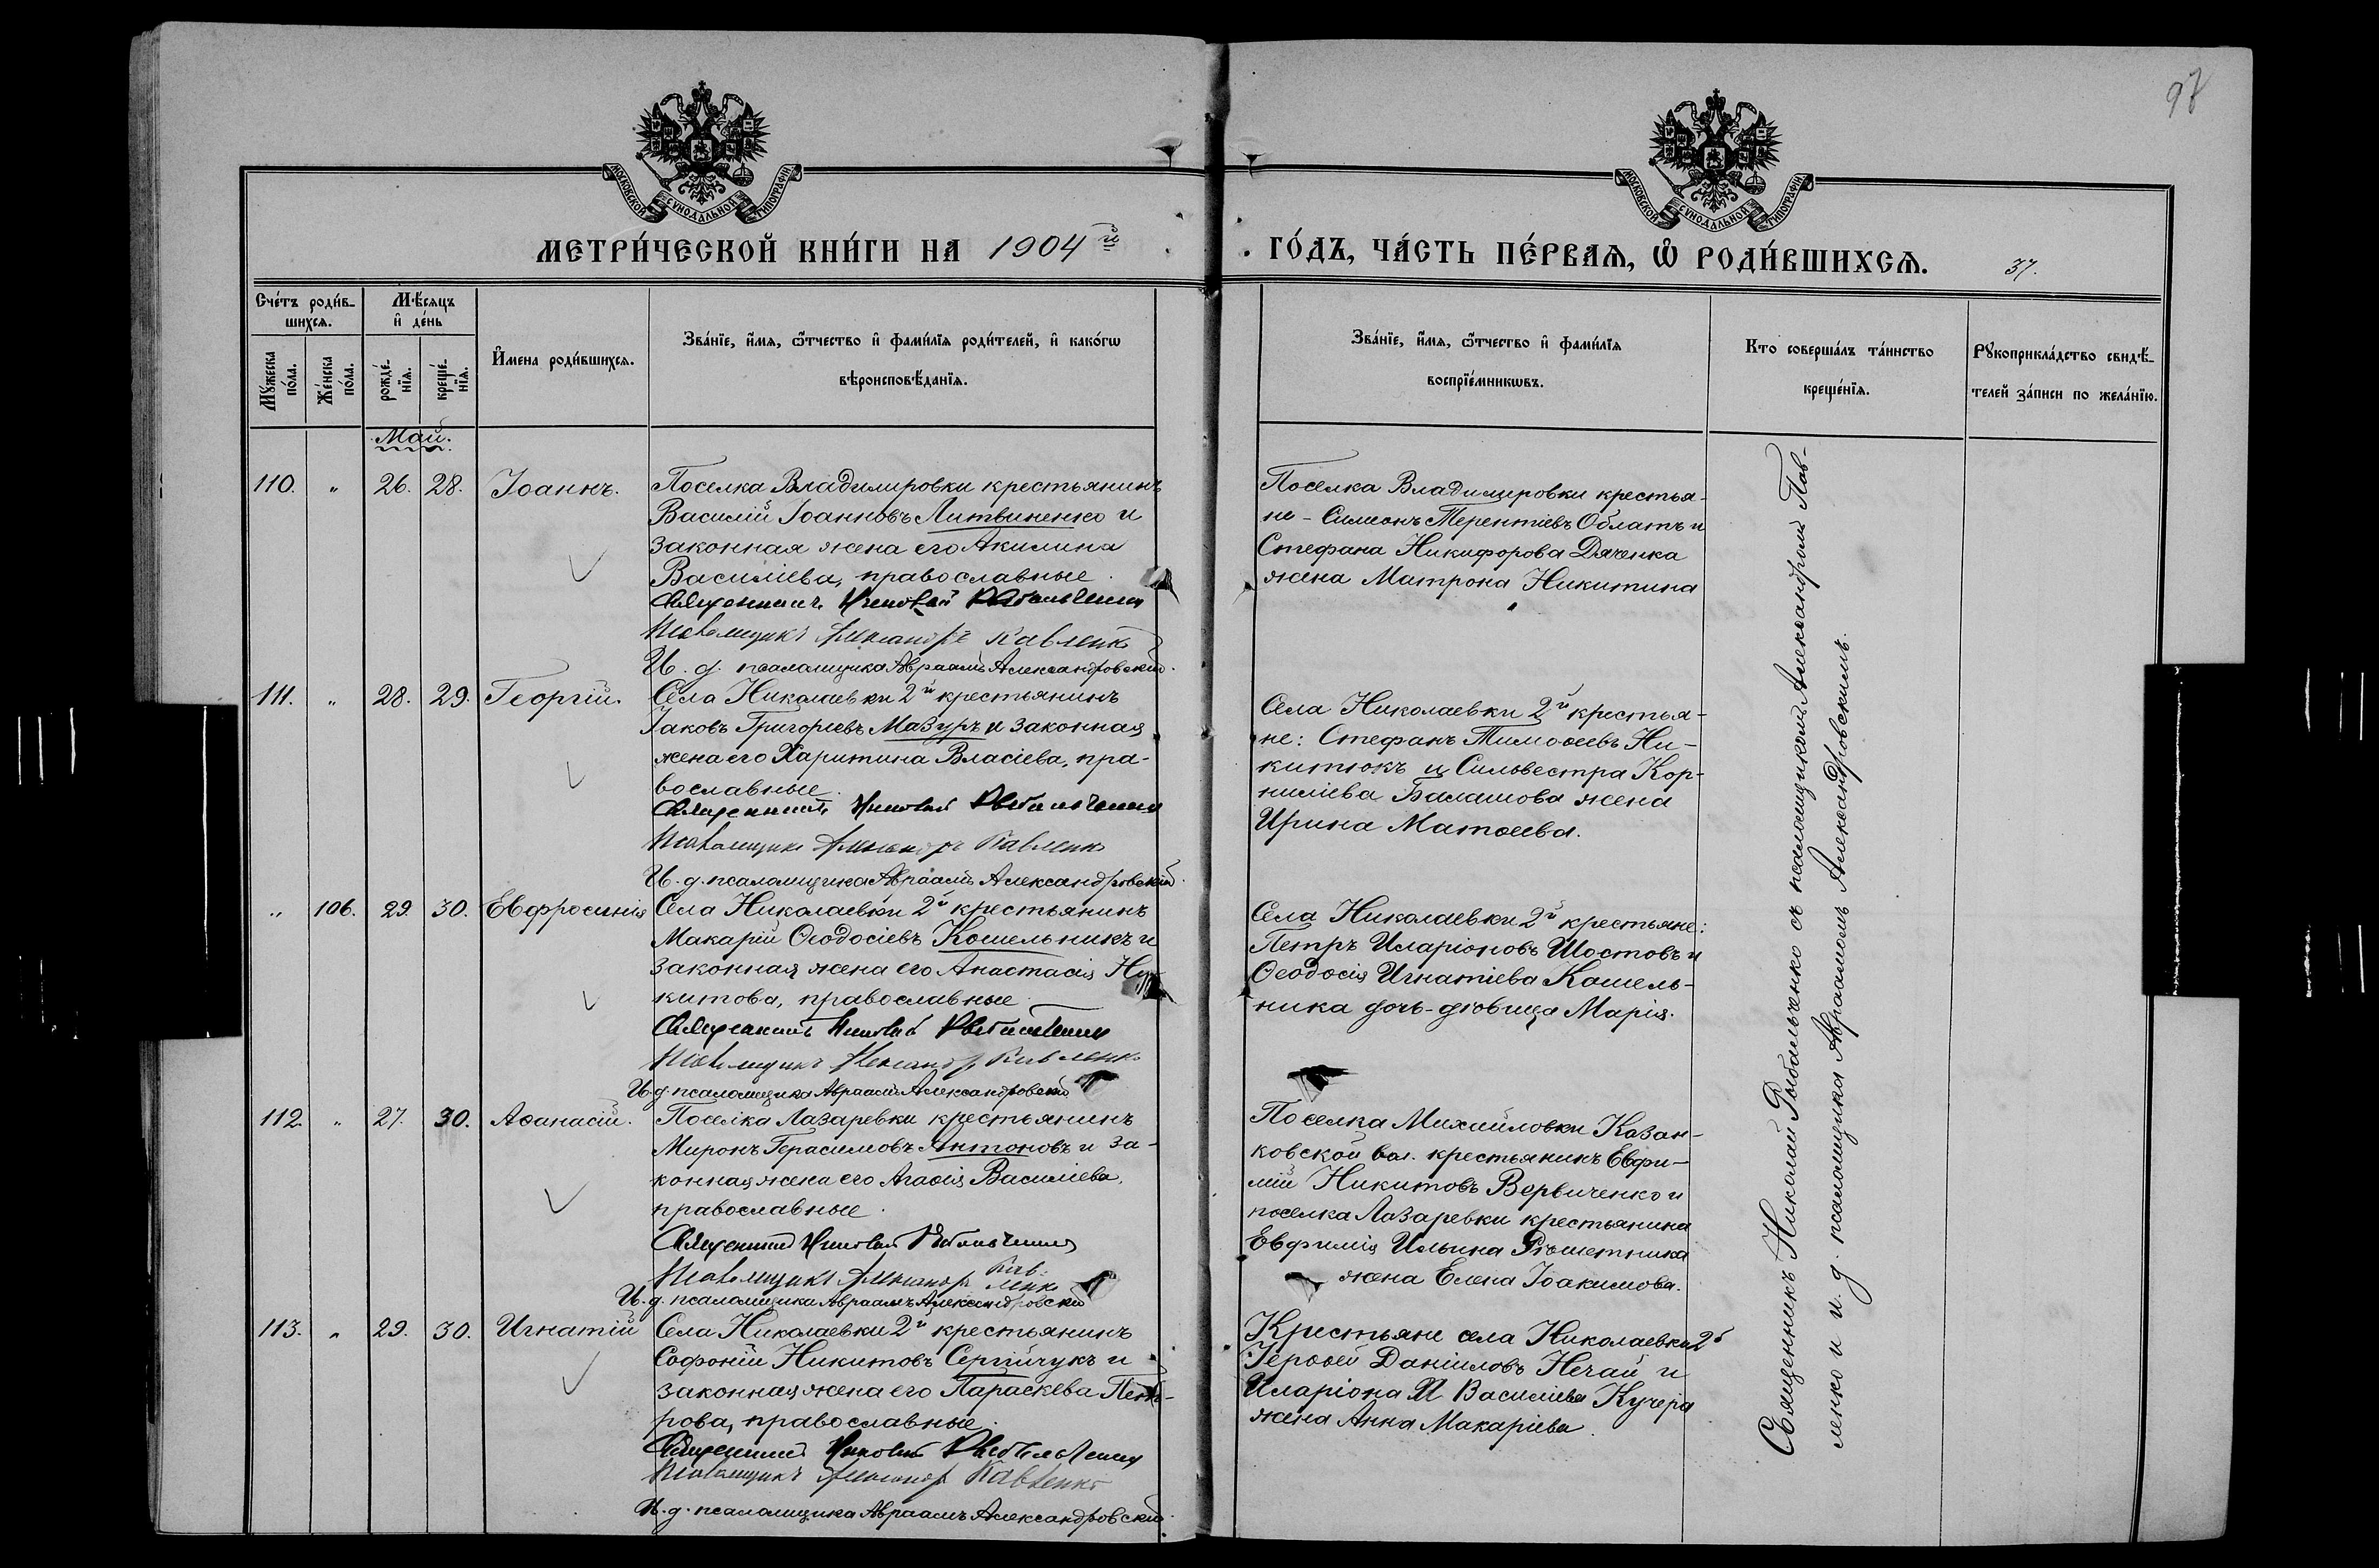 97
МОСКОВСКОЙ СѴНОДАЛЬНОЙ ТИПОГРАФІИ
МОСКОВСКОЙ СѴНОДАЛЬНОЙ ТИПОГРАФІИ
МЕТРИ́ЧЕСКОЙ КНИ́ГИ НА 1904й
ГО́ДЪ, ЧА́СТЬ ПЕ́РВАѦ, Ѡ РОДИ́ВШИХСѦ.
37.
Сче́тъ роди́в-
шихсѧ.
Мꙋ́жеска
по́ла.
Же́нска
по́ла.
Мѣ́сѧцъ
и҆ де́нь
рожде́-
нїѧ.
креще́-
нїѧ.
И҆мена роди́вшихсѧ.
Зва́нїе, и҆́мѧ, ѻ҆́тчество и҆ фами́лїѧ роди́телей, и҆ како́гѡ
вѣроисповѣ́данїѧ.
Зва́нїе, и҆́мѧ, ѻ҆́тчество и҆ фами́лїѧ
воспрїе́мникѡвъ.
Кто соверша́лъ та́инство
креще́нїѧ.
Рꙋкоприкла́дство свидѣ́-
телей за́писи по жела́нїю.
Май.
110. " 26. 28. Іоаннъ.
Поселка Владимировки крестьянинъ
Василій Іоанновъ Литвиненко и
законная жена его Акилина
Василіева, православные.
Священникъ Николай Рыбальченко
Псаломщикъ Александръ Павленко
И. д. псаломщика Авраамъ Александровскій.
Поселка Владимировки крестья-
не - Симеонъ Терентіевъ Облатъ и
Стефана Никифорова Дяченка
жена Матрона Никитина
111. " 28. 29. Георгій.
Села Николаевки 2й крестьянинъ
Іаковъ Григоріевъ Мазуръ и законная
жена его Харитина Власіева, пра-
вославные.
Священникъ Николай Рыбальченко
Псаломщикъ Александръ Павленко
И. д. псаломщика Авраамъ Александровскій.
Села Николаевки 2й крестья-
не: Стефанъ Тимоѳеевъ Ни-
китюкъ и Сильвестра Кор-
ниліева Балашова жена
Ирина Матѳеева.
" 106. 29. 30. Евфросинія
Села Николаевки 2й крестьянинъ
Макарій Ѳеодосіевъ Кошельникъ и
законная жена его Анастасія Ни
китова, православные.
Священникъ Николай Рыбальченко
Псаломщикъ Александръ Павленко
И. д. псаломщика Авраамъ Александровскій
Села Николаевки 2й крестьяне:
Петръ Иларіоновъ Шостовъ и
Ѳеодосія Игнатіева Кошель-
ника дочь-дѣвица Марія.
112. " 27. 30. Аѳанасій.
Поселка Лазаревки крестьянинъ
Миронъ Герасимовъ Антоновъ и за-
конная жена его Агаѳія Василіева,
православные.
Священникъ Николай Рыбальченко
Псаломщикъ Александръ Пав-
ленко
И. д. псаломщика Авраамъ Александровскій
Поселка Михайловки Казан-
ковской вол. крестьянинъ Евфи-
мій Никитовъ Вервиченко и
поселка Лазаревки крестьянина
Евфимія Ильина Рѣшетника
жена Елена Іоакимова.
113. " 29. 30. Игнатій
Села Николаевки 2й крестьянинъ
Софоній Никитовъ Сергійчукъ и
законная жена его Параскева Пет-
рова, православные.
Священникъ Николай Рыбальченко
Псаломщикъ Александръ Павленко
И. д. псаломщика Авраамъ Александровскій.
Крестьяне села Николаевки 2й
Іероѳей Даніиловъ Нечай и
Иларіона Василіева Кучера
жена Анна Макаріева.
Священникъ Николай Рыбальченко съ псаломщикомъ Александромъ Пав-
ленко и и. д. псаломщика Авраамомъ Александровскимъ.